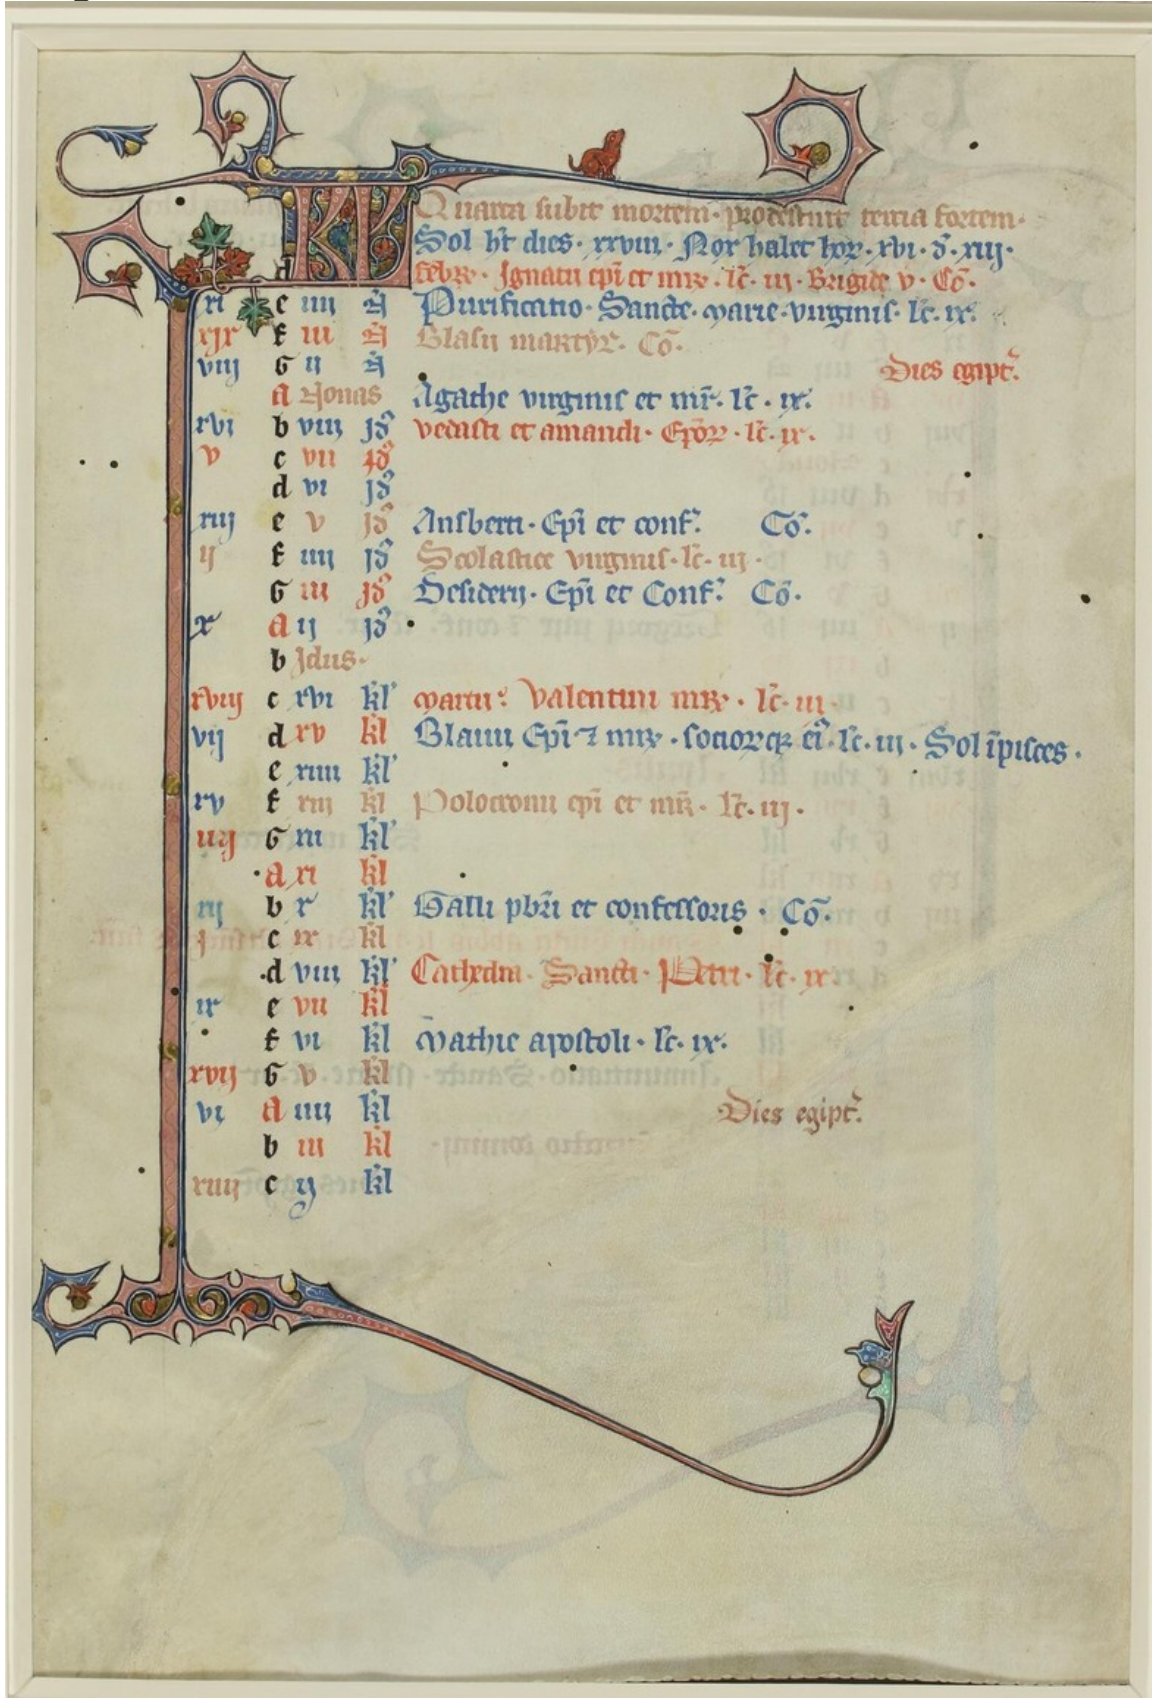 KL Quarta subit mortem · prosternit tercia fortem ·
Sol ht dies · xxviii · Nox habet hor · xvi · d · xiij ·
d febr · Ignatii epi et mr · lc · iij · Brigide v · Co ·
xi e iiij N Purificatio · Sancte · marie · virginis · lc · ix ·
xix f iii N Blasii martyr · Co ·
viij G ii N Dies egipt
a Nonas Agathe virginis et mr · lc · ix ·
xvi b viii jd vedasti et amandi · Epor · lc · ix ·
v c vii jd
d vi jd
xiij e v jd Ansberti · Epi et conf Co ·
ij f iiij jd Scolastice virginis · lc · iij ·
G iii jd Desiderij · Epi et Conf Co ·
x a ij jd
b jdus ·
xviij c xvi kl martii Valentini mr · lc · iij ·
vij d xv kl Blauii Epi ⁊ mr · sociorq ei · lc · iij · Sol i pisces ·
e xiiii kl
xv f xiij kl Policronii epi et mr · lc · iij ·
iiij G xii kl
a xi kl
xij b x kl Galli pbri et confessoris · Co ·
j c ix kl
d viii kl Cathedra · Sancti · Petri · lc · ix
ix e vii kl
f vi kl mathie apostoli · lc · ix ·
xvij G v kl
vi a iiii kl Dies egipt
b iii kl
xiiij c ij kl